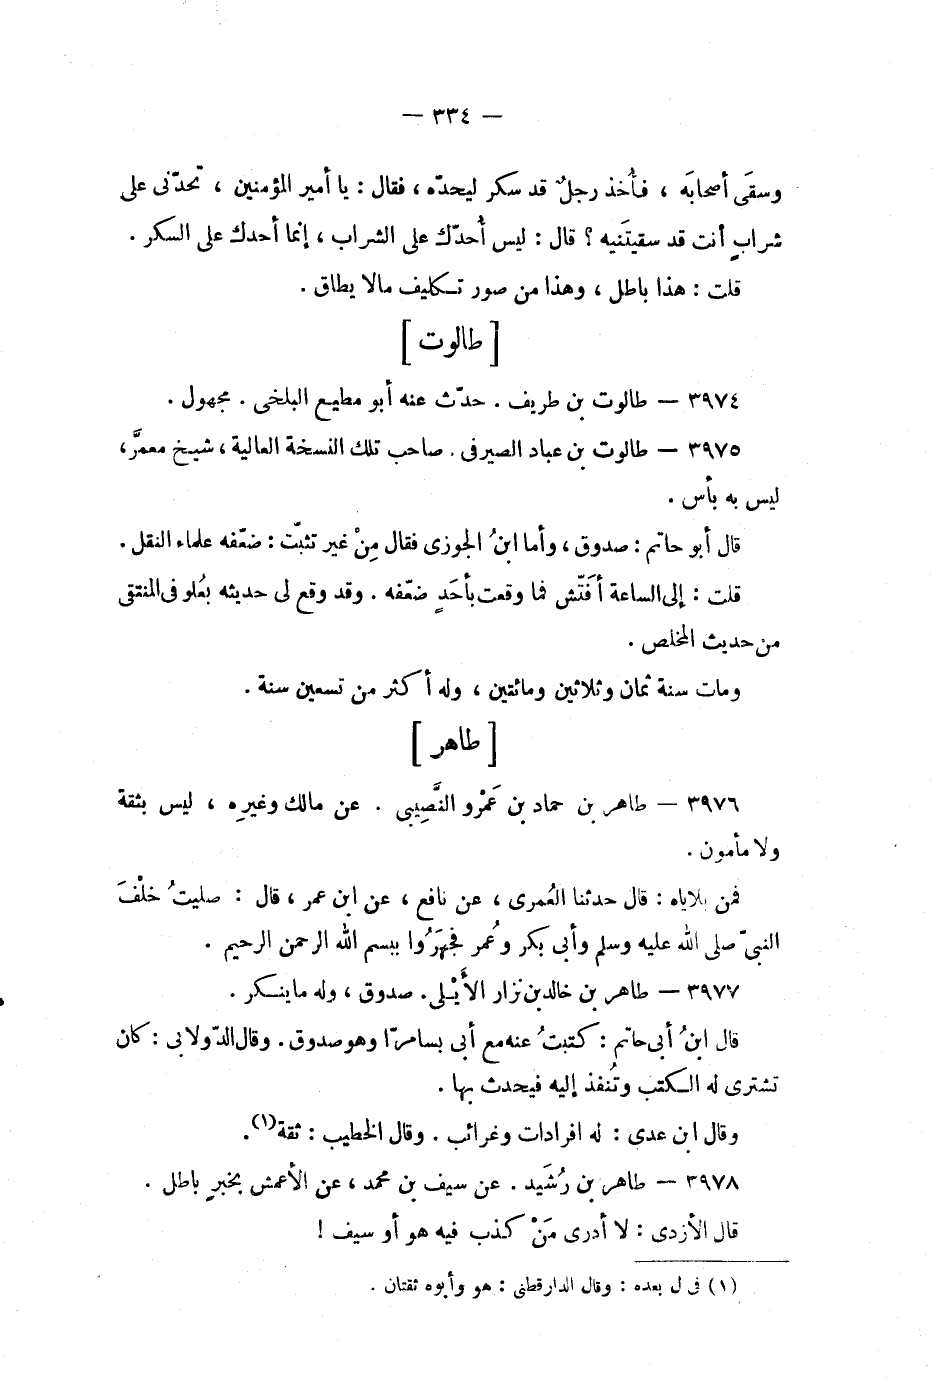 — ٣٣٤ —
وسقَى أصحابَه ، فأُخذ رجلٌ قد سكر ليحدّه ، فقال : يا أمير المؤمنين ، تحدّنى على
شرابٍ أنت قد سقيتَنيه ؟ قال : ليس أُحدّك على الشراب ، إنما أحدك على السكر .
قلت : هذا باطل ، وهذا من صور تكليف مالا يطاق .
[ طالوت ]
٣٩٧٤ — طالوت بن طريف . حدّث عنه أبو مطيع البلخى . مجهول .
٣٩٧٥ — طالوت بن عباد الصيرفى . صاحب تلك النسخة العالية ، شيخ معمَّر ،
ليس به بأس .
قال أبو حاتم : صدوق ، وأما ابنُ الجوزى فقال مِنْ غير تثبّت : ضعّفه علماء النقل .
قلت : إلى الساعة أفَتّش فما وقعت بأحَدٍ ضعّفه . وقد وقع لى حديثه بعُلو فى المنتقى
من حديث المخلص .
ومات سنة ثمان وثلاثين ومائتين ، وله أكثر من تسعين سنة .
[ طاهر ]
٣٩٧٦ — طاهر بن حماد بن عَمْرو النَّصِيبى . عن مالك وغيرِه ، ليس بثقة
ولا مأمون .
فمن بلاياه : قال حدثنا العُمرى ، عن نافع ، عن ابن عمر ، قال : صليتُ خلْفَ
النبىّ صلى الله عليه وسلم وأبى بكر وعُمر فجهَرُوا ببسم الله الرحمن الرحيم .
٣٩٧٧ — طاهر بن خالد بن نزار الأَيْلى . صدوق ، وله ما ينكر .
قال ابنُ أبى حاتم : كتبتُ عنه مع أبى بسامرّا وهو صدوق . وقال الدّولابى : كان
تشترى له الكتب وتُنفذ إليه فيحدث بها .
وقال ابن عدى : له افرادات وغرائب . وقال الخطيب : ثقة(١) .
٣٩٧٨ — طاهر بن رُشَيد . عن سيف بن محمد ، عن الأعمش بخبرٍ باطل .
قال الأزدى : لا أدرى مَنْ كذب فيه هو أو سيف !
(١) فى ل بعده : وقال الدارقطنى : هو وأبوه ثقتان .